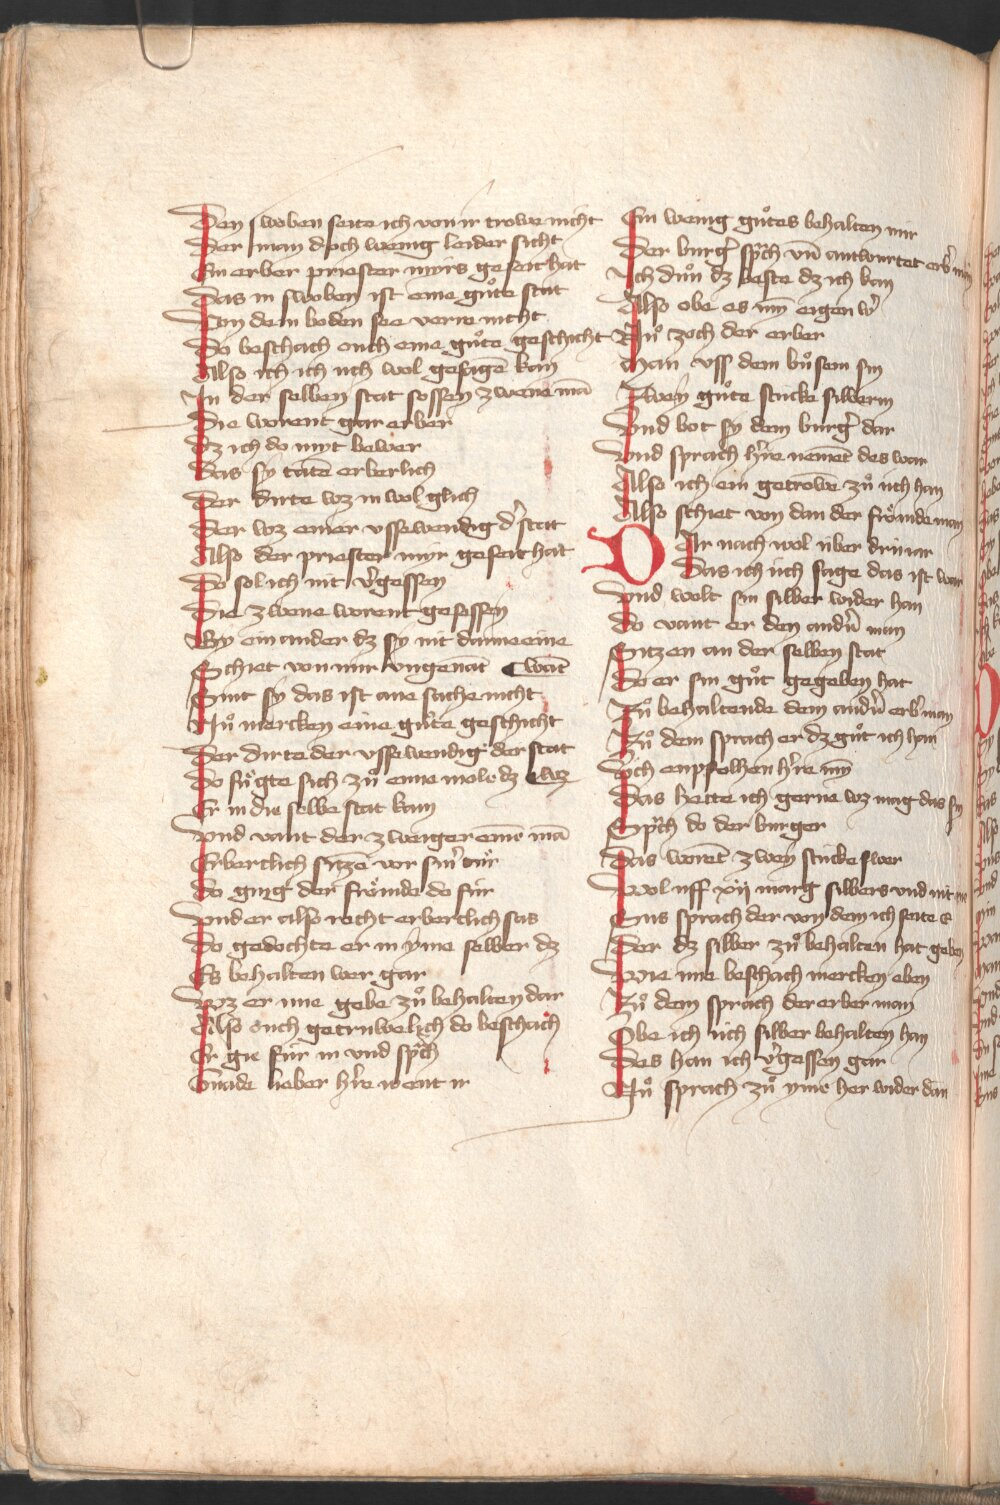 Den swoben seite ich von ir trowe nicht
Der man doch wenig leider sicht
Ein erber priester mirs geseit hat
Das in swoben ist eine guͦte stat
Von dem boden see verre nicht
Do beschach ouch eine guͦte geschicht
Also ich ich uch wol gesagē kan
In der selben stat sossen zwene mā
Die worent gar erber
Dz ich do myt bewer
Das sy tatē erberlich
Der dirte wz in wol glich
Der wz einer ussewendig dʼ stat
Also der priester mir geseit hat
Do sol ich nit vʼgessen
Die zwene worent gesessen
By ein ander dz sy nit danne eine
Schiet von mir ungenāt watē
Sint sy das ist ane sache nicht
Nuͦ mercken eine guͦte geschicht
Der dirte der ussewendig der stat
Do fuͤgte sich zuͦ eime mole dz wz
Er in die selbe stat kam
Und vant der zweiger einē mā
Erbertlich sitzē vor sinʼ tuͤr
Do ging der froͤmde do fur
Und er also recht erbertlich sas
Do gedochte er in yme selber dz
Es behalten wer gar
Waz er ime gebe zuͦ behalten dar
Also ouch getruwelich do beschach
Er gie fur in und spͣch
Gnade lieber hʼre went ir
Ein wenig guͦtes behalten mir
Der burgʼ spͣch uñ antwurtet erbʼ
Ich duͦn dz beste dz ich kan
Also obe es min eigen wʼ
Nuͦ zoch der erber
Man uss dem buͦsem sin
Zwey guͦte stucke silberin
Und bot sy dem burgʼ dar
Und sprach hʼre nemēt des war
Also ich ein getrowē zuͦ uch han
Also schiet von dan der froͤmde man
Dar nach wol uber dru iar
Das ich uch sage das ist war
Und wolt sin silber wider han
Do vant er den andʼn man
Sitzen an der selben stat
Do er sin guͦt gegeben hat
Zuͦ behaltende dem andʼn erbʼ man
Zuͦ dem sprach er dz guͦt ich han
Uch enpfolhen hʼre min
Das hette ich gerne wz mag das sin
Spͣch do der burger
Das worēt zwey stucke swer
Wol uff xii marg silbers und nit
Sus sprach der von dem ich seite e
Der dz silber zuͦ behalten hat geben
Wie ime beschach mercken eben
Zuͦ dem sprach der erber man
Obe ich uch silber behalten han
Des han ich vʼgessen gar
Nuͦ sprach zuͦ yme her wider dan